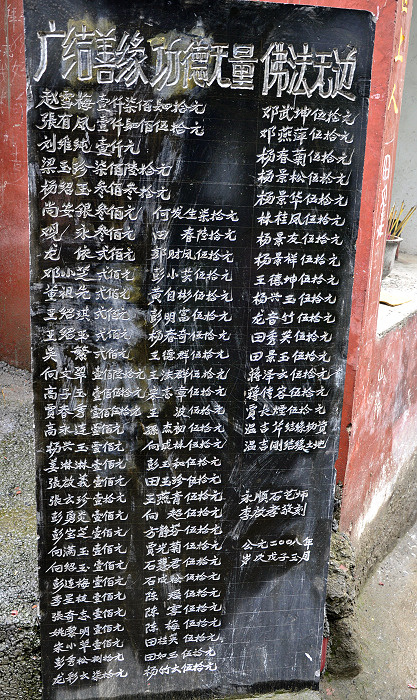 广结善缘 功德无量 佛法无边
赵雪梅 壹仟柒佰 拾元
张有凤 壹仟 佰伍拾元
刘维纯 壹仟元
梁玉珍 柒佰陸拾元
杨绍玉 叁佰叁拾元
尚安银 叁佰元
永 叁佰元
龙 贰佰元
邓小芝 贰佰元
董祖先 贰佰元
王绍琪 贰佰元
王绍平 贰佰元
吴 繁 贰佰元
向文翠 壹佰 拾元
高子玉 壹佰 拾元
贾春秀 壹佰 拾元
高永莲 壹佰元
杨兴玉 壹佰元
姜琳琳 壹佰元
张放羲 壹佰元
张云珍 壹拾元
彭勇芝 壹佰元
彭宝芝 壹佰元
向满玉 壹佰元
向绍玉 壹佰元
彭连梅 壹佰元
李圣枝 壹佰元
张奇志 壹佰元
姚黎明 壹佰元
宋小苹 壹佰元
彭秀松 捌拾元
龙彩云 柒拾元
何发生 柒拾元
田 春 陸拾元
邹财凤 伍拾元
彭小英 伍拾元
黄自彬 伍拾元
彭明富 伍拾元
杨春奇 伍拾元
王德群 伍拾元
王洪群 伍拾元
梁志章 伍拾元
王 波 伍拾元
孫杰初 伍拾元
向成林 伍拾元
彭玉和 伍拾元
田玉珍 伍拾元
王燕青 伍拾元
向 超 伍拾元
方静芬 伍拾元
贾光菊 伍拾元
石慧君 伍拾元
石成松 伍拾元
陈 瑶 伍拾元
陈 雪 伍拾元
陈 梅 伍拾元
田桂英 伍拾元
田如三 伍拾元
杨竹云 伍拾元
邓武坤 伍拾元
邓燕萍 伍拾元
杨春菊 伍拾元
杨景松 伍拾元
杨景华 伍拾元
林桂凤 伍拾元
杨景友 伍拾元
杨景祥 伍拾元
王德坤 伍拾元
杨兴玉 伍拾元
龙音竹 伍拾元
田秀英 伍拾元
田景玉 伍拾元
蒋泽云 伍拾元
蒋传容 伍拾元
贾长煌 伍拾元
温吉华 结缘物资
温吉刚 结缘土地
永顺石艺师
李放孝敬刻
公元二00八年
岁次戊子三月